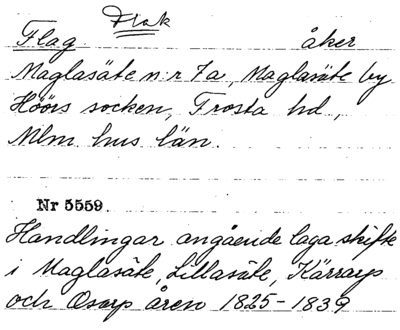 Flak
Flag åker
Maglasäte n:r 7a, Maglasäte by
Höörs socken, Frosta hd,
Mlm. hus län.
Nr 5559.
Handlingar angående laga skifte
i Maglasäte, Lillasäte, Kärrarp
och Osarp åren 1825-1839